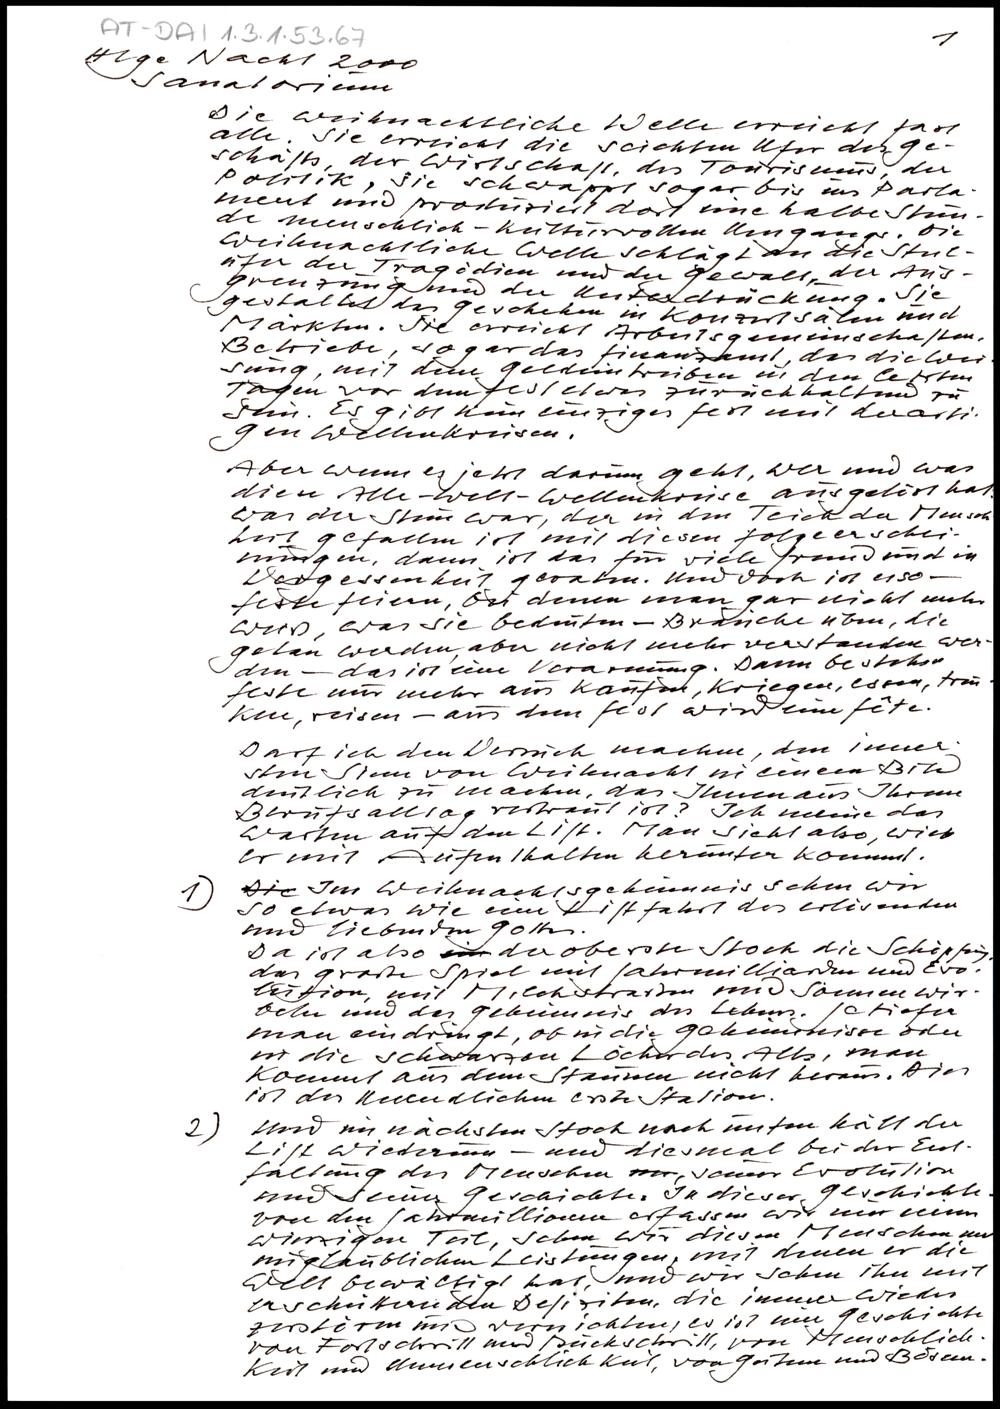 AT-DAI 1.3.1.53.67
1
Hlge Nacht 2000
Sanatorium
Die weihnachtliche Welle erreicht fast
alle. Sie erreicht die seichten Ufer des Ge-
schäfts, der Wirtschaft, des Tourismus, der
Politik, sie schwappt sogar bis ins Parla-
ment und produziert dort eine halbe Stun-
de menschlich-kulturvollen Umgangs. Die
weihnachtliche Welle schlägt an die Steil-
ufer der Tragödien und der Gewalt, der Aus-
grenzung und der Unterdrückung. Sie
gestaltet das Geschehen in Konzertsälen und
Märkten. Sie erreicht Arbeitsgemeinschaften,
Betriebe, sogar das Finanzamt, das die Wei-
sung, mit dem Geldeintreiben in den letzten
Tagen vor dem Fest etwas zurückhaltend zu
sein. Es gibt kein einziges Fest mit derarti-
gen Wellenkreisen.
Aber wenn es jetzt darum geht, wer und was
diese Alle-Welt-Wellenkreise ausgelöst hat,
was der Stein war, der in den Teich der Mensch
heit gefallen ist mit diesen Folgeerschei-
nungen, dann ist das für viele fremd und in
Vergessenheit geraten. Und doch ist es so –
Feste feiern, bei denen man gar nicht mehr
weiß, was sie bedeuten – Bräuche üben, die
getan werden, aber nicht mehr verstanden wer-
den – das ist eine Verarmung. Dann bestehen
Feste nur mehr aus kaufen, kriegen, essen, trin-
ken, reisen – aus dem Fest wird eine fête.
Darf ich den Versuch machen, den inner-
sten Sinn von Weihnacht in einem Bild
deutlich zu machen, das Ihnen aus Ihrem
Berufsalltag vertraut ist? Ich meine das
Warten auf den Lift. Man sieht also, wie
er mit Aufenthalten herunter kommt.
1) Die Im Weihnachtsgeheimnis sehen wir
so etwas wie eine Liftfahrt des erlösenden
und liebenden Gottes.
Da ist also im der oberste Stock die Schöpfung,
das große Spiel mit Jahrmilliarden und Evo-
lution, mit Milchstraßen und Sonnenwir-
beln und das Geheimnis des Lebens. Je tiefer
man eindringt, ob in die Geheimnisse oder
in die schwarzen Löcher des Alls, man
kommt aus dem Staunen nicht heraus. Dies
ist des Unendlichen erste Station.
2) Und im nächsten Stock nach unten hält der
Lift wiederum – und diesmal bei der Ent-
faltung des Menschen, seiner Evolution
und seiner Geschichte. In dieser Geschichte
von den Jahrmillionen erfassen wir nur einen
winzigen Teil, sehen wir diesen Menschen mit
unglaublichen Leistungen, mit denen er die
Welt bewältigt hat, und wir sehen ihn mit
erschütternden Defiziten, die immer wieder
zerstören und vernichten, es ist eine Geschichte
von Fortschritt und Rückschritt, von Menschlich-
keit und Unmenschlichkeit, von Gutem und Bösem.